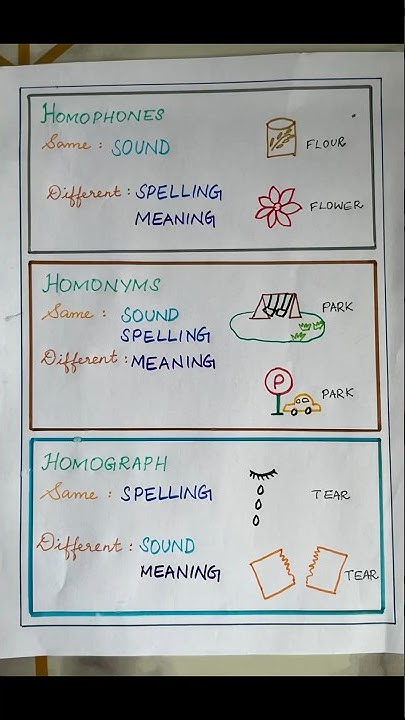 HOMOPHONES
Same : SOUND
FLOUR
Different : SPELLING
MEANING
FLOWER
HOMONYMS
Same : SOUND
SPELLING
PARK
Different : MEANING
P
PARK
HOMOGRAPH
Same : SPELLING
TEAR
Different : SOUND
MEANING
TEAR